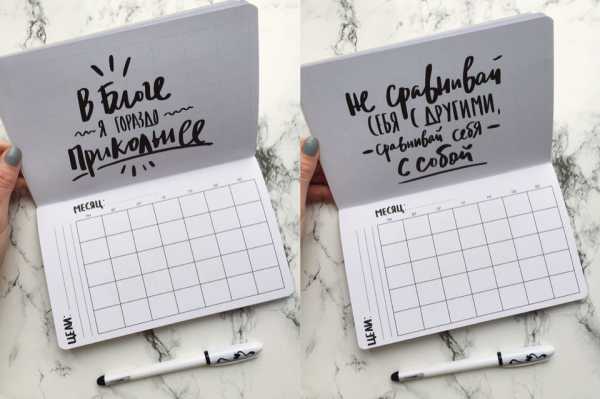 В Блоге
я гораздо
Прикольнее
МЕСЯЦ:
ЦЕЛИ:
Не сравнивай
СЕБЯ С ДРУГИМИ,
сравнивай себя
с собой
МЕСЯЦ:
ЦЕЛИ: